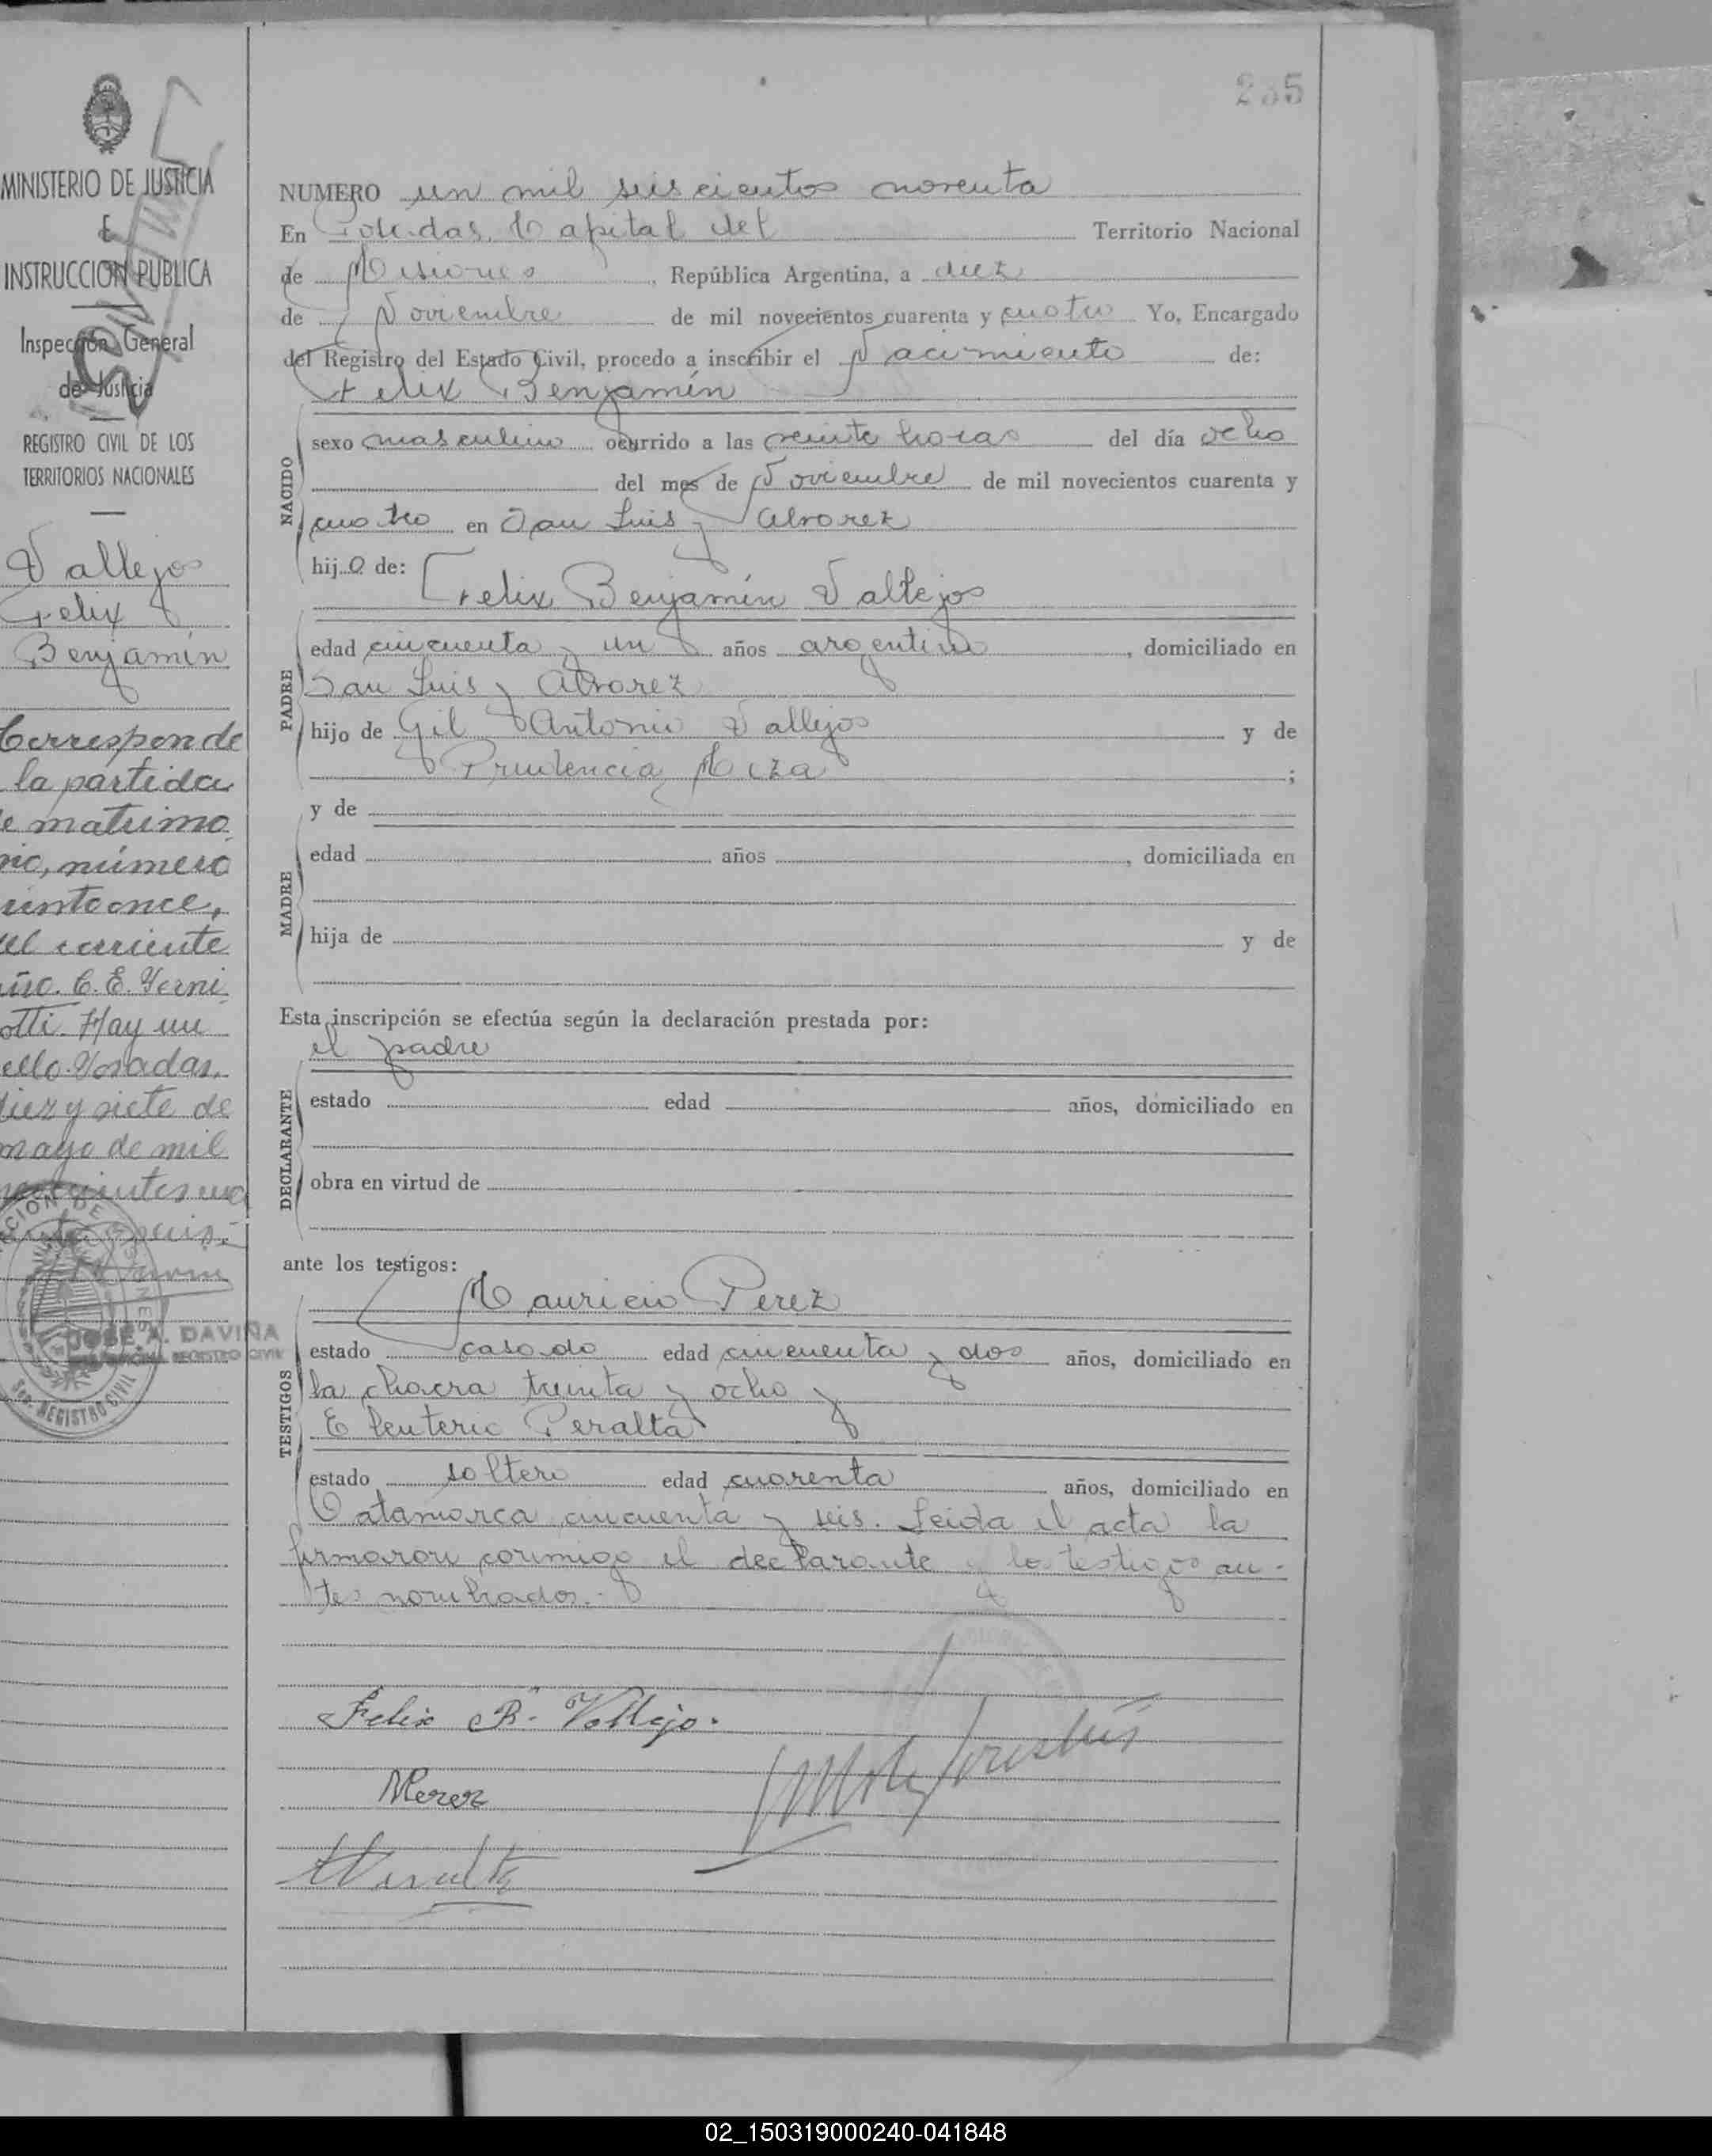 235
MINISTERIO DE JUSTICIA
E
INSTRUCCION PUBLICA
Inspección General
de Justicia
REGISTRO CIVIL DE LOS
TERRITORIOS NACIONALES
Vallejos
Felix
Benjamín
Corresponde
la partida
e matrimo
nio, número
ciento once,
del corriente
año. C. E. Verni
otti. Hay un
sello. Posadas,
diez y siete de
mayo de mil
JOSÉ A. DAVIÑA
REGISTRO CIVIL
NUMERO un mil seiscientos noventa
En Posadas, Capital del Territorio Nacional
de Misiones, República Argentina, a diez
de Noviembre de mil novecientos cuarenta y cuatro Yo, Encargado
del Registro del Estado Civil, procedo a inscribir el Nacimiento de:
Felix Benjamín
NACIDO
sexo masculino ocurrido a las veinte horas del día ocho
del mes de Noviembre de mil novecientos cuarenta y
cuatro en San Luis y Alvarez
hijo de:
Felix Benjamín Vallejos
PADRE
edad cincuenta y un años argentino, domiciliado en
San Luis y Alvarez
hijo de Gil Antonio Vallejos y de
Prudencia Meza ;
y de
MADRE
edad años , domiciliada en
hija de y de
Esta inscripción se efectúa según la declaración prestada por:
el padre
DECLARANTE
estado edad años, domiciliado en
obra en virtud de
ante los testigos:
Mauricio Perez
TESTIGOS
estado casado edad cincuenta y dos años, domiciliado en
la chacra treinta y ocho y
Eleuterio Peralta
estado soltero edad cuarenta años, domiciliado en
Catamarca cincuenta y seis. Leida el acta la
firmaron conmigo el declarante y los testigos an-
tes nombrados.-
Felix B. Vallejo.
MPerez
02_150319000240-041848